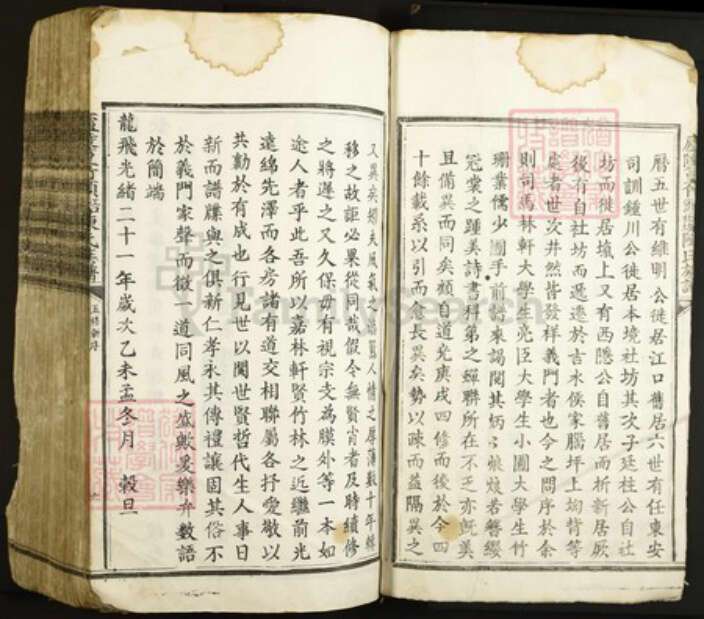 曆五世有維明公徙居江口舊居六世有任東安
司訓鍾川公徙居本境社坊其次子廷柱公自社
坊而徙居塅上又有西隱公自舊居而析新居厥
後有自社坊而遷遠於吉水侯家腦坪上坳背等
處者世次井然皆發祥義門者也今之問序於余
則司馬林軒大學生亮臣大學生小圃大學生竹
珊業儒少圃手前譜來謁閱其炳炳烺烺若簪纓
冠裳之踵美詩書科第之蟬聯所在不乏亦既美
且備異而同矣顧自道光庚戌四修而後於今四
十餘載系以引而愈長異矣勢以疎而益隔異之
又異矣
風氣之
人情之厚薄數十年轉
移之故詎必果從同哉假令無賢肖者及時續修
之將遲之又久保毋有視宗支為膜外等一本如
途人者乎此吾所以嘉林軒賢竹林之近繼前光
遠綿先澤而各房諸有道交相聯屬各抒愛敬以
共勷於有成也行見世以閱世賢哲代生人事日
新而譜牒與之俱新仁孝永其傳禮讓固其俗不
於義門家聲而徵一道同風之盛歟爰樂弁數語
於簡端
龍飛光緒二十一年歲次乙未孟冬月 穀旦
FamilySearch